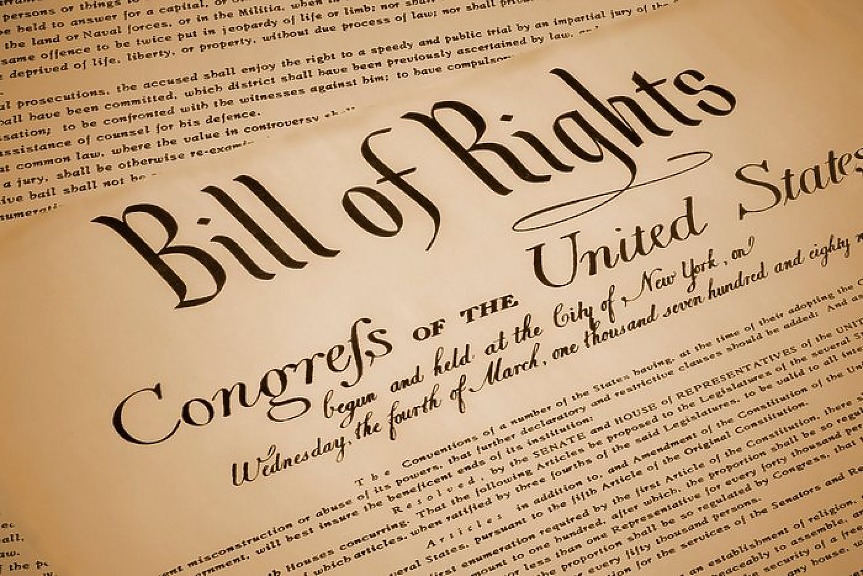 persons or things to
be held to answer for a capital, or
the land or Naval forces, or in the Militia, when in
same offence to be twice put in jeopardy of life or limb; nor shall
deprived of life, liberty, or property, without due process of law; nor shall
prosecutions, the accused shall enjoy the right to a speedy and public trial by an impartial jury of the
shall have been committed, which district shall have been previously ascertained by law,
to be confronted with the witnesses against him; to have
assistance of counsel for his defence.
at common law, where the value in controversy
a jury, shall be otherwise
bail shall not be
Bill of Rights
Congreſs OF THE United States
begun and held at the City of New York, on
Wednesday, the fourth of March, one thousand seven hundred and eighty
The Conventions of a number of the States having, at the time of their adopting the
misconstruction or abuse of its powers, that further declaratory and restrictive clauses should be added: And
will best insure the beneficent ends of its institution:
Resolved, by the SENATE and HOUSE of REPRESENTATIVES of the
Houses concurring. That the following Articles be proposed to the Legislatures of the several
which articles, when ratified by three fourths of the said Legislatures, to be valid to all
Articles in addition to, and Amendment of the Constitution of the
States, pursuant to the fifth Article of the Original Constitution.
first enumeration required by the first Article of the Constitution, there
to one hundred, after which, the proportion shall be so
or less than one Representative for every forty thousand
the proportion shall be so regulated by Congress, that
for every fifty thousand persons.
for the services of the Senators and
an establishment of religion,
peaceably to assemble,
security of a
house,